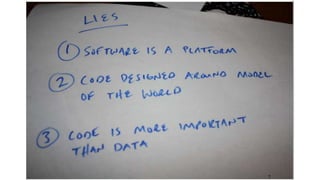 LIES
1 SOFTWARE IS A PLATFORM
2 CODE DESIGNED AROUND MODEL
OF THE WORLD
3 CODE IS MORE IMPORTANT
THAN DATA